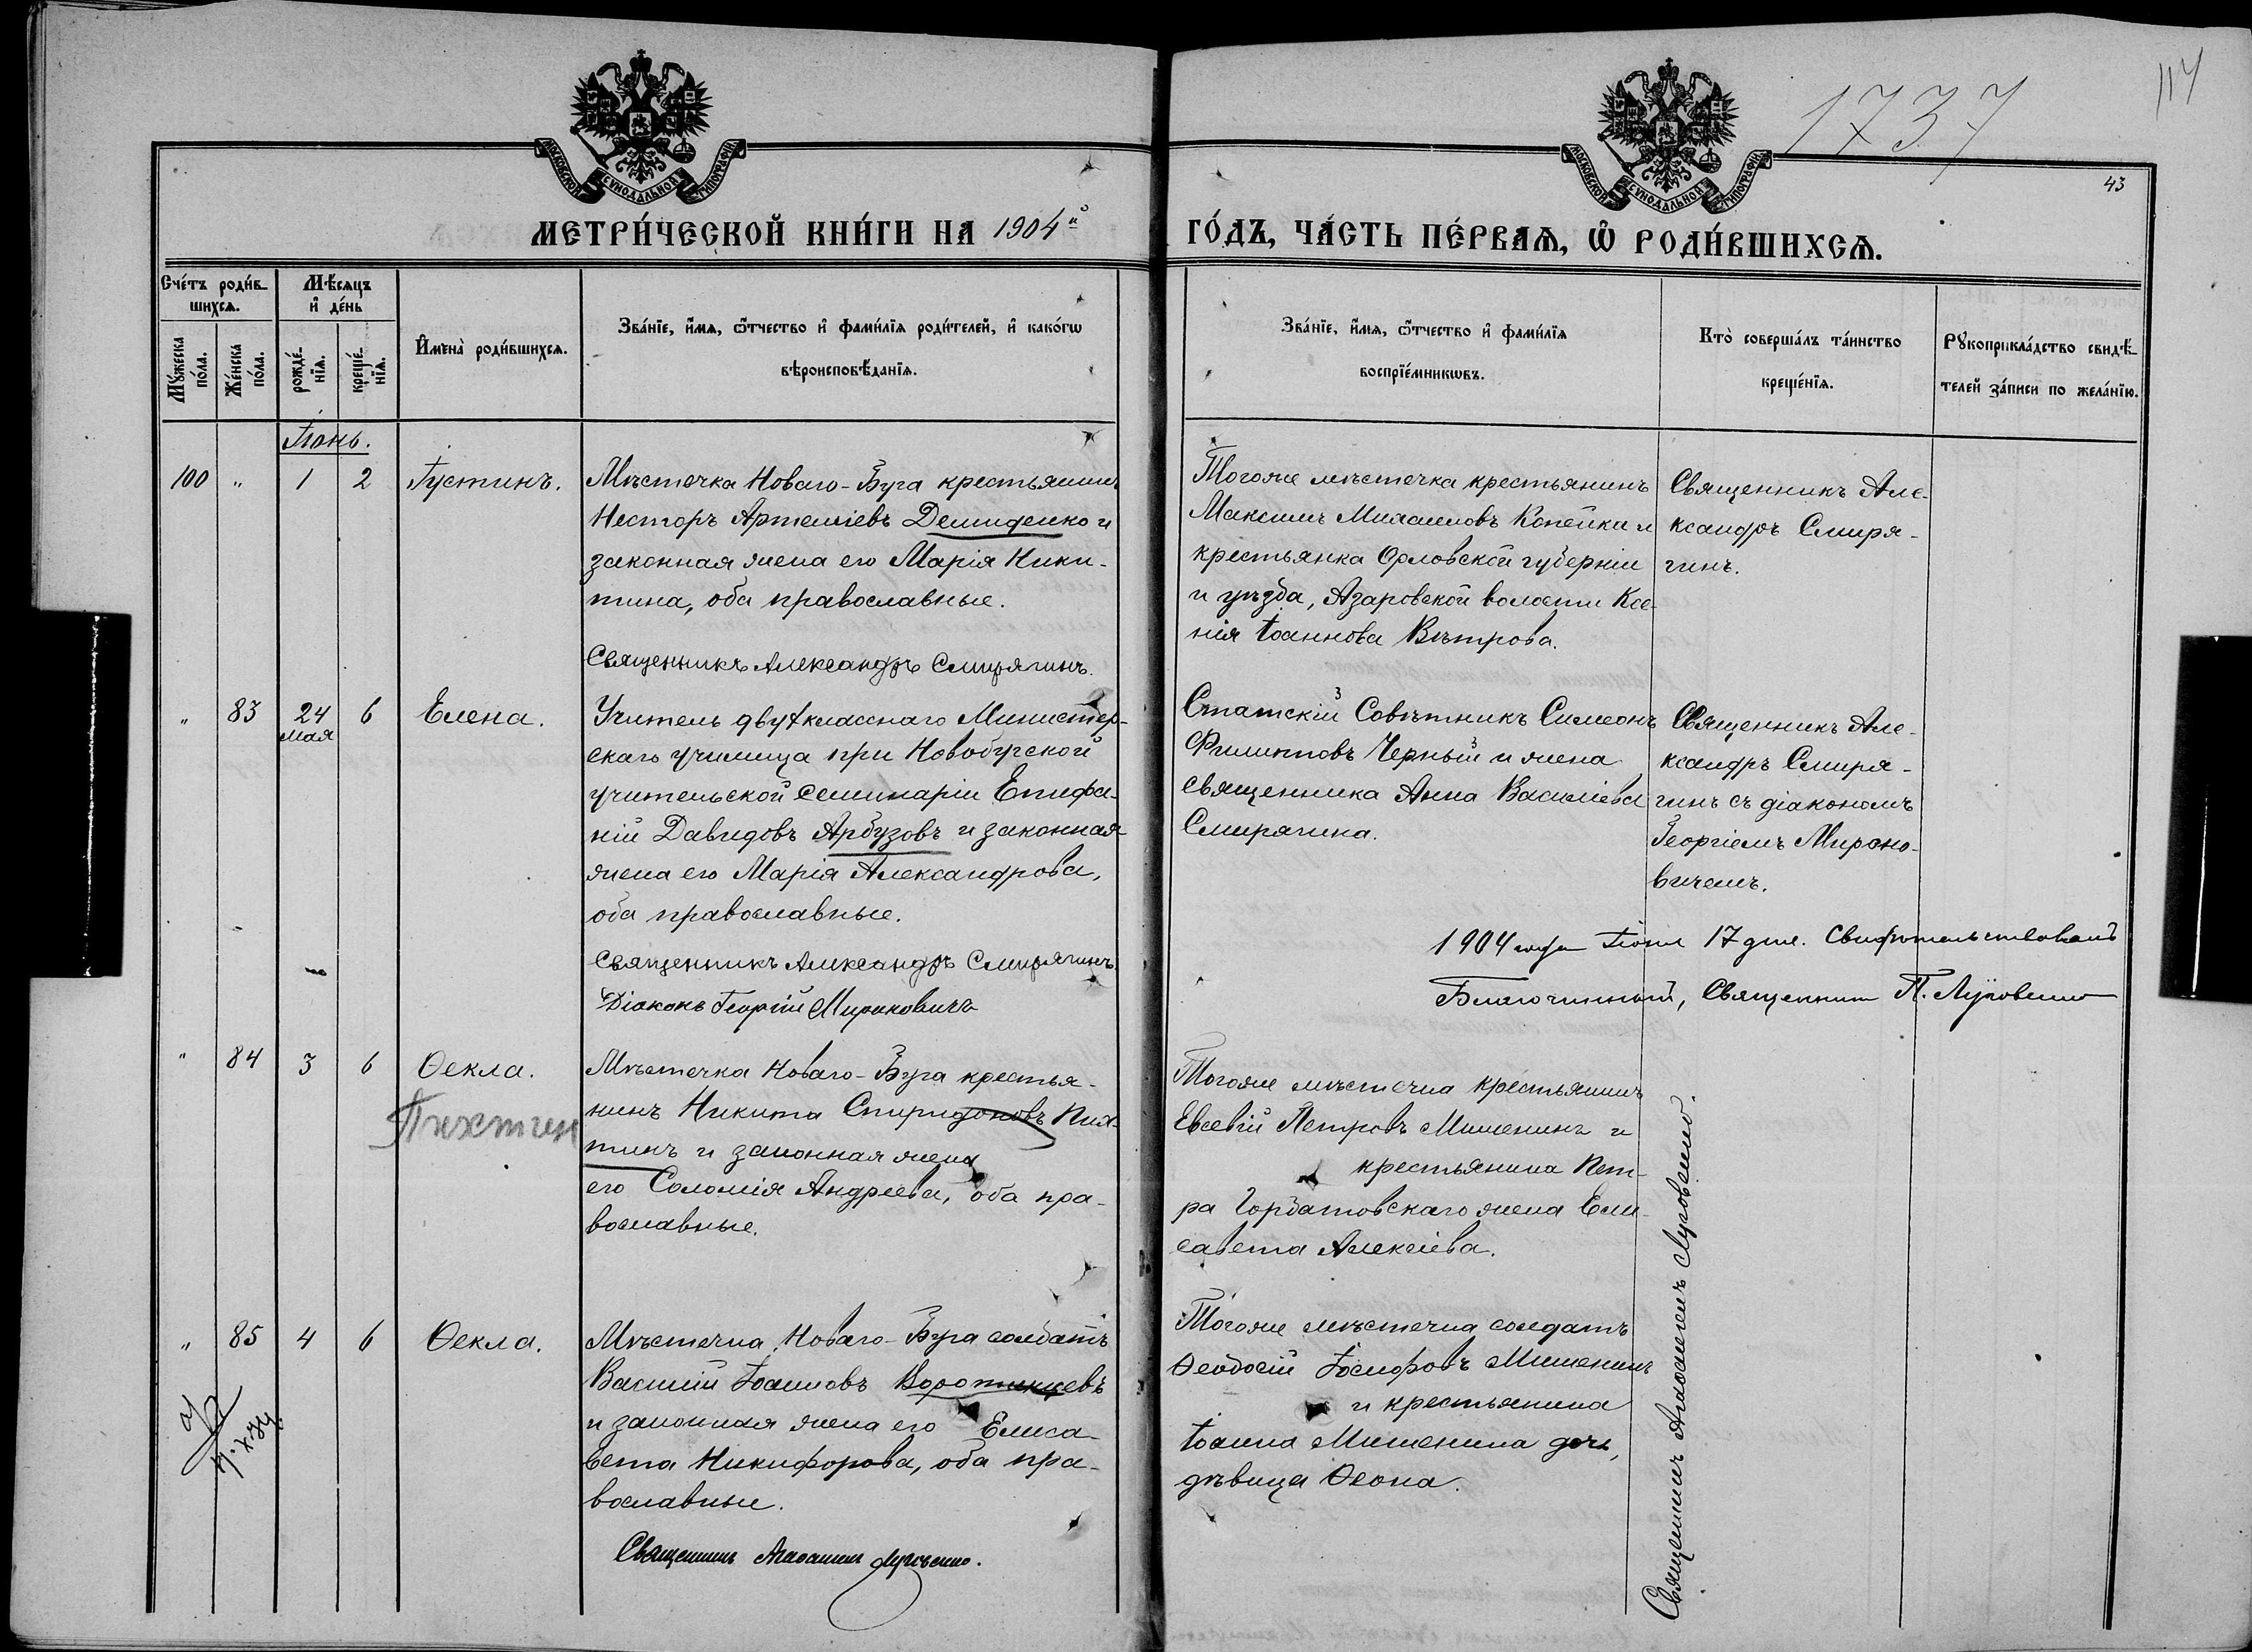 1737
114
МОСКОВСКОЙ СѴНОДАЛЬНОЙ ТИПОГРАФІИ
МОСКОВСКОЙ СѴНОДАЛЬНОЙ ТИПОГРАФІИ
43
МЕТРИ́ЧЕСКОЙ КНИ́ГИ НА 1904й
ГО́ДЪ, ЧА́СТЬ ПЕ́РВАѦ, Ѡ҆ РОДИ́ВШИХСѦ.
Сче́тъ роди́в-
шихсѧ.
Мѣ́сѧцъ
и҆ де́нь
Мꙋ́жеска
по́ла.
Же́нска
по́ла.
рожде́-
нїѧ.
креще́-
нїѧ.
И҆мена̀ роди́вшихсѧ.
Зва́нїе, и҆́мѧ, ѻ҆́тчество и҆ фами́лїѧ роди́телей, и҆ како́гѡ
вѣроисповѣ́данїѧ.
Зва́нїе, и҆́мѧ, ѻ҆́тчество и҆ фами́лїѧ
воспрїе́мникѡвъ.
Кто̀ соверша́лъ та́инство
креще́нїѧ.
Рꙋкоприкла́дство свидѣ́-
телей за́писи по жела́нїю.
Іюнь.
100 " 1 2 Іустинъ.
Мѣстечка Новаго-Буга крестьянинъ
Несторъ Артеміевъ Демиденко и
законная жена его Марія Ники-
тина, оба православные.
Священникъ Александръ Смирягинъ.
Тогоже мѣстечка крестьянинъ
Максимъ Михаиловъ Копейка и
крестьянка Орловской губерніи
и уѣзда, Азаровской волости Ксе-
нія Іоаннова Вѣтрова.
Священникъ Але-
ксандръ Смиря-
гинъ.
" 83 24 6 Елена.
мая
Учитель двухкласснаго Министер-
скаго училища при Новобугской
учительской семинаріи Епифа-
ній Давидовъ Арбузовъ и законная
жена его Марія Александрова,
оба православные.
Священникъ Александръ Смирягинъ.
Діаконъ Георгій Мироновичъ
Статскій Совѣтникъ Симеонъ
Филипповъ Черный и жена
священника Анна Василіева
Смирягина.
Священникъ Але-
ксандръ Смиря-
гинъ съ діакономъ
Георгіемъ Мироно-
вичемъ.
1904 года Іюня 17 дня. Свидѣтельствовалъ
Благочинный, Священникъ П. Луговенко
" 84 3 6 Ѳекла.
Пихтин
Мѣстечка Новаго-Буга крестья-
нинъ Никита Спиридоновъ Пих-
тинъ и законная жена
его Соломія Андреева, оба пра-
вославные.
Тогоже мѣстечка крестьянинъ
Евсевій Петровъ Мишенинъ и
крестьянина Пет-
ра Горбатовскаго жена Ели-
савета Алексіева.
" 85 4 6 Ѳекла.
Мѣстечка Новаго-Буга солдатъ
Василій Іоанновъ Воротынцевъ
и законная жена его Елиса-
вета Никифорова, оба пра-
вославные.
Священникъ Аѳанасій Луговенко.
Тогоже мѣстечка солдатъ
Ѳеодосій Іосифовъ Мишенинъ
и крестьянина
Іоанна Мишенина дочь,
дѣвица Ѳеона.
Священникъ Аѳанасій Луговенко.